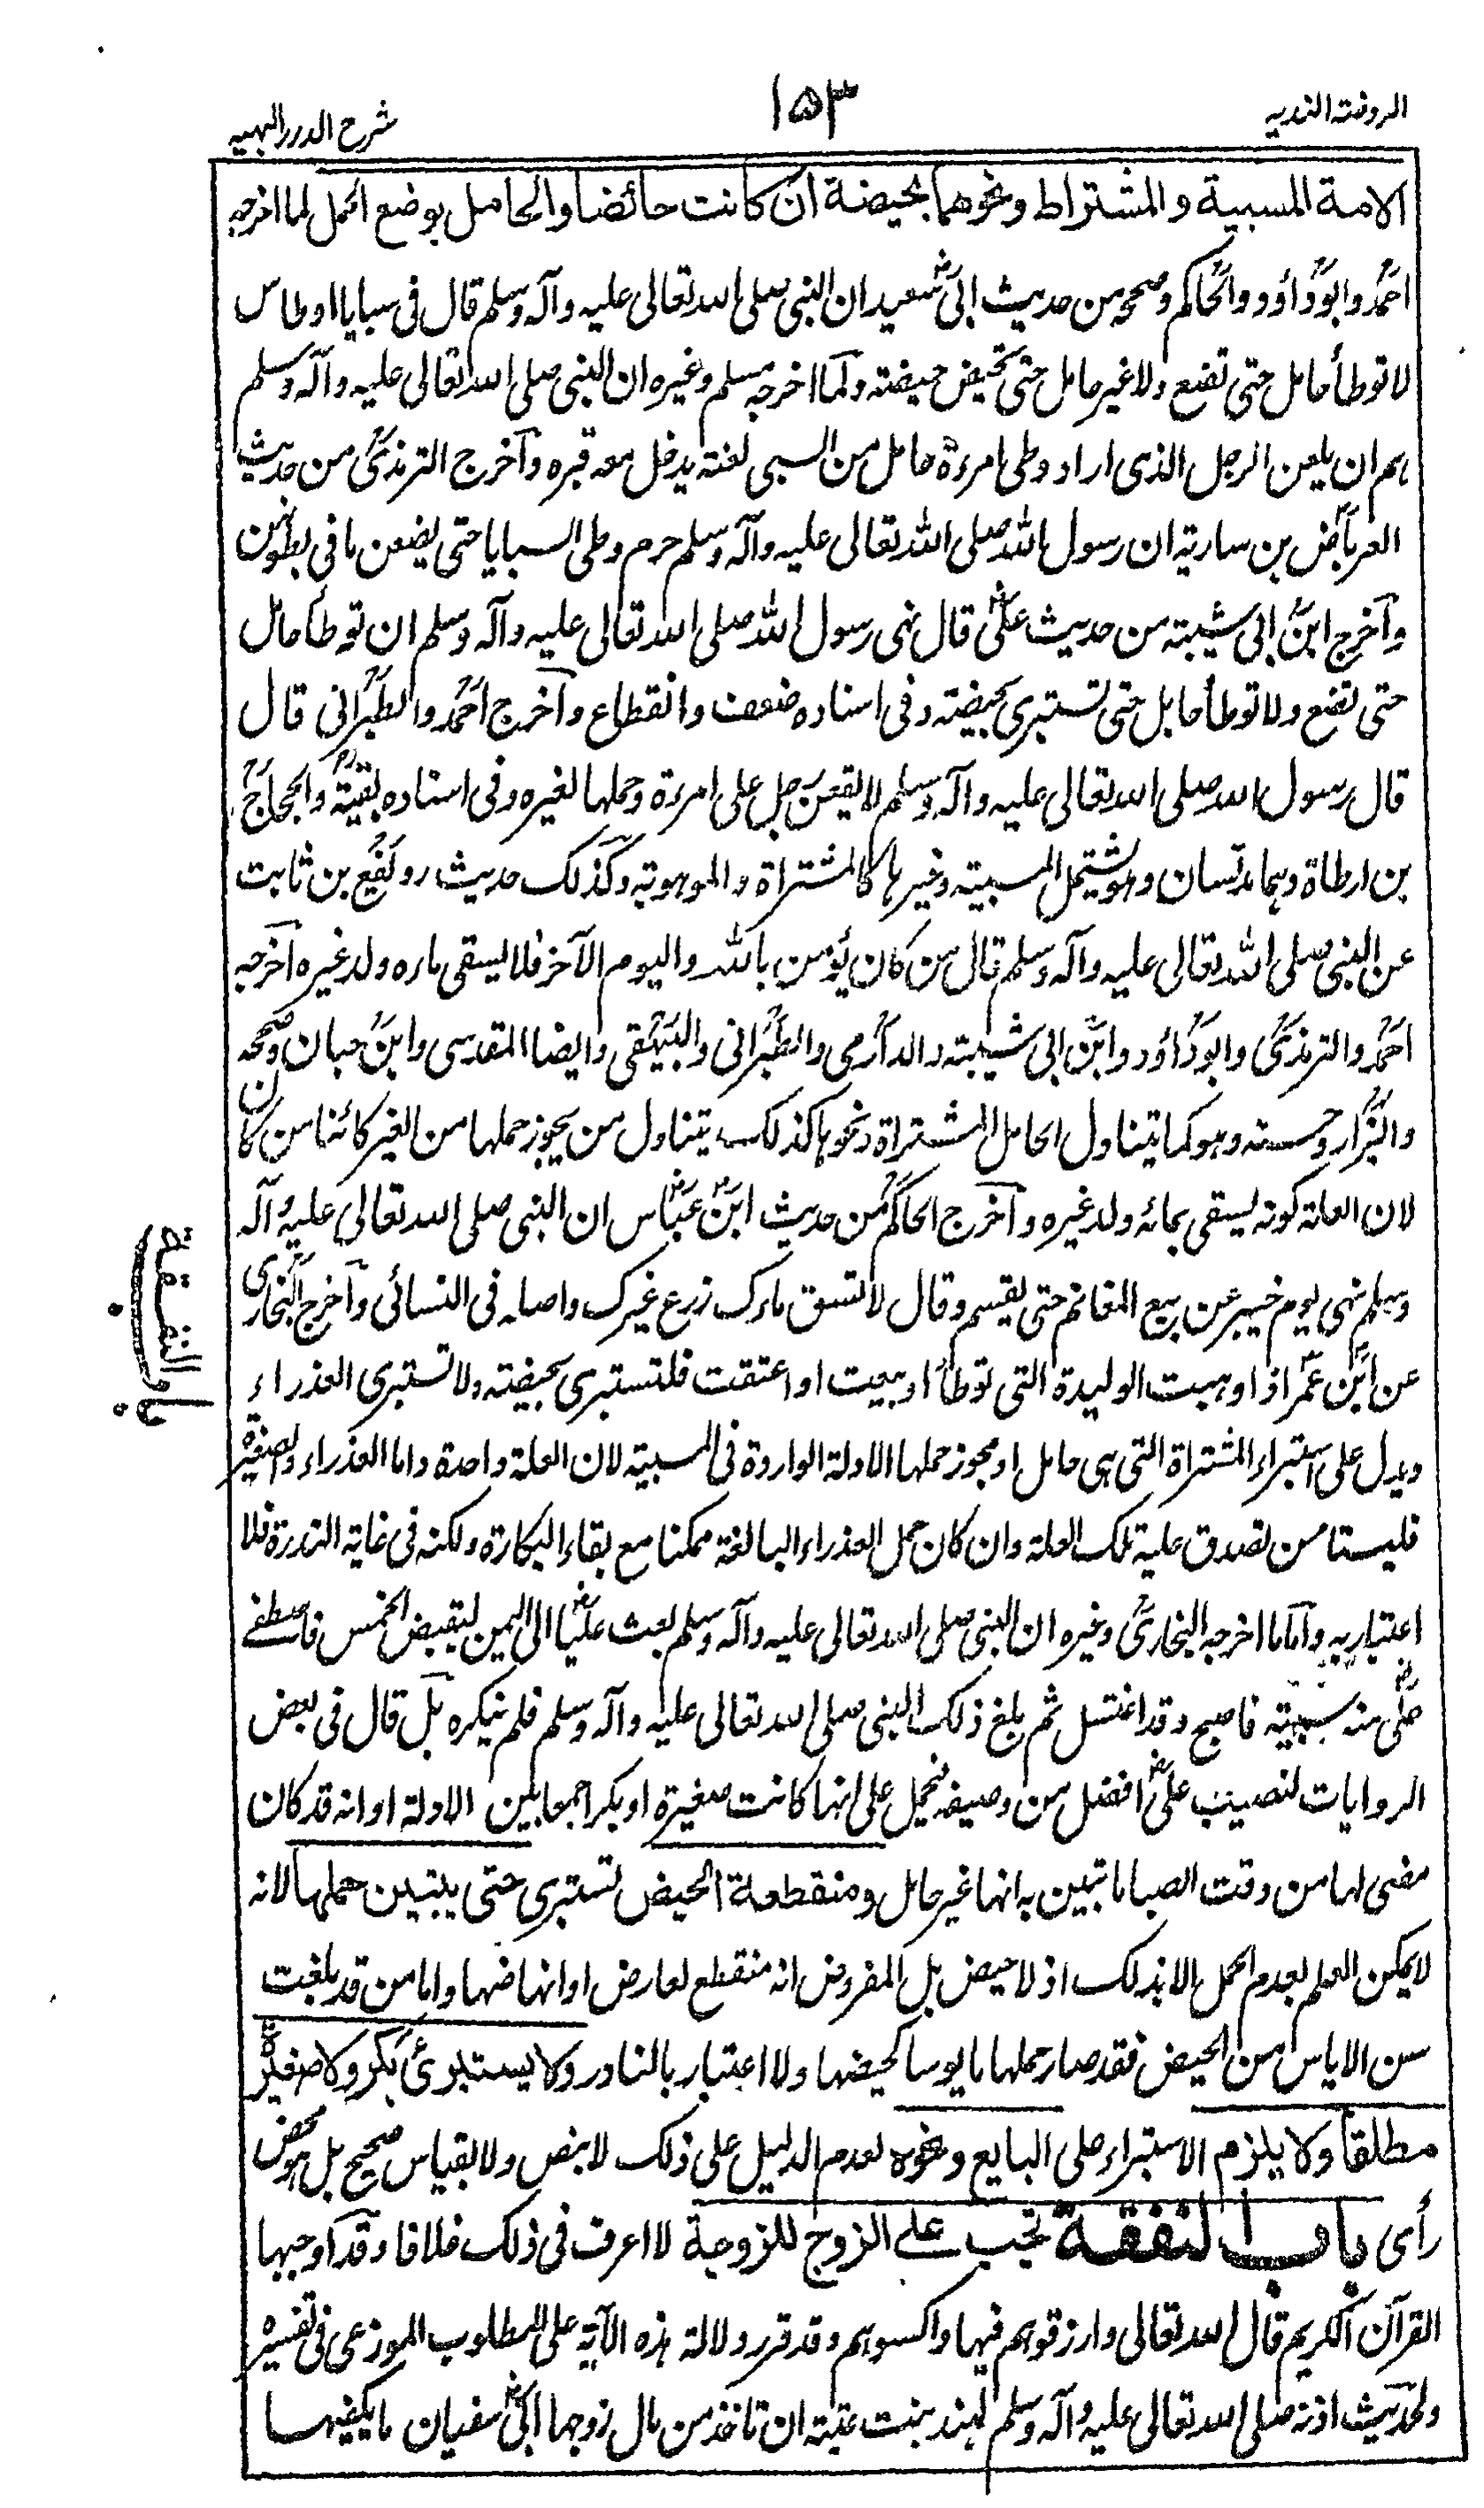 الروضة الندية
١٥٣
شرح الدرر البهية
الامة المسبية والمشتراط ونحوهما بحيضة ان كانت حائضا والحامل بوضع الحمل لما اخرجه
احمد وابو داؤد والحاكم وصححه من حديث ابى سعيد ان النبى صلى الله تعالى عليه وآله وسلم قال فى سبايا اوطاس
لا توطأ حامل حتى تضع ولا غير حامل حتى تحيض حيضة ولما اخرجه مسلم وغيره ان النبى صلى الله تعالى عليه وآله وسلم
هم ان يلعن الرجل الذى اراد وطى امرءة حامل من السبى لعنة يدخل معه قبره وآخرج الترمذى من حديث
العرباض بن سارية ان رسول الله صلى الله تعالى عليه وآله وسلم حرم وطى السبايا حتى يضعن ما فى بطونهن
وآخرج ابن ابى شيبة من حديث على قال نهى رسول الله صلى الله تعالى عليه وآله وسلم ان توطأ حامل
حتى تضع ولا توطأ حايل حتى تستبرى بحيضة وفى اسناده ضعف وانقطاع وآخرج احمد والطبرانى قال
قال رسول الله صلى الله تعالى عليه وآله وسلم لا يقعن رجل على امرءة وحملها لغيره وفى اسناده بقية والحجاج
بن ارطاة وهما مدلسان وهو يشتمل المسبية وغيرها كالمشتراة والموهوبة وكذلك حديث رويفع بن ثابت
عن النبى صلى الله تعالى عليه وآله وسلم قال من كان يؤمن بالله واليوم الآخر فلا يسقى ماءه ولد غيره آخرجه
احمد والترمذى وابو داؤد وابن ابى شيبة والدارمى والطبرانى والبيهقى والضيا المقدسى وابن حبان وصححه
والبزار وحسنه وهو كما يتناول الحامل المشتراة ونحوها كذلك يتناول من يجوز حملها من الغير كائنا من كان
لان العلة كونه يسقى بمائه ولد غيره وآخرج الحاكم من حديث ابن عباس ان النبى صلى الله تعالى عليه وآله
وسلم نهى يوم خيبر عن بيع المغانم حتى يقسم وقال لا تسق ماءك زرع غيرك واصله فى النسائى وآخرج البخارى
عن ابن عمر اذا وهبت الوليدة التى توطأ او بيعت او اعتقت فلتستبرى بحيضة ولا تستبرى العذراء
ويدل على استبراء المشتراة التى هى حامل او مجوز حملها الادلة الواردة فى المسبية لان العلة واحدة واما العذراء والصغيرة
فليستا ممن تصدق عليه تلك العلة وان كان حمل العذراء البالغة ممكنا مع بقاء البكارة ولكنه فى غاية الندرة فلا
اعتبار به وآما ما اخرجه البخارى وغيره ان النبى صلى الله تعالى عليه وآله وسلم بعث عليا الى اليمن ليقبض الخمس فاصطفے
على منه سبية فاصبح وقد اغتسل ثم بلغ ذلك النبى صلى الله تعالى عليه وآله وسلم فلم ينكره بل قال فى بعض
الروايات لنصيب على افضل من وصيفة فيحمل على انها كانت صغيرة او بكرا جمعا بين الادلة او انه قد كان
مضى لها من وقت السبا ما تبين به انها غير حامل ومنقطعة الحيض تستبرى حتى يتبين حملها لانه
لا يمكن العلم بعدم الحمل الا بذلك اذ لا حيض بل المفروض انه منقطع لعارض او انها ضهيا واما من قد بلغت
سن الاياس من الحيض فقد صار حملها مايوسا كحيضها ولا اعتبار بالنادر ولا يستبرئ بكر ولا صغيرة
مطلقا ولا يلزم الاستبراء على البايع ونحوه لعدم الدليل على ذلك لا بنص ولا بقياس صحيح بل هو محض
رأى باب النفقة تجب على الزوج للزوجة لا اعرف فى ذلك خلافا وقد اوجبها
القرآن الكريم قال الله تعالى وارزقوهم فيها واكسوهم وقد قرر دلالة هذه الآية على المطلوب الموزعى فى تفسيره
ولحديث اذنه صلى الله تعالى عليه وآله وسلم لهند بنت عتبة ان تاخذ من مال زوجها ابى سفيان ما يكفيها
باب النفقة